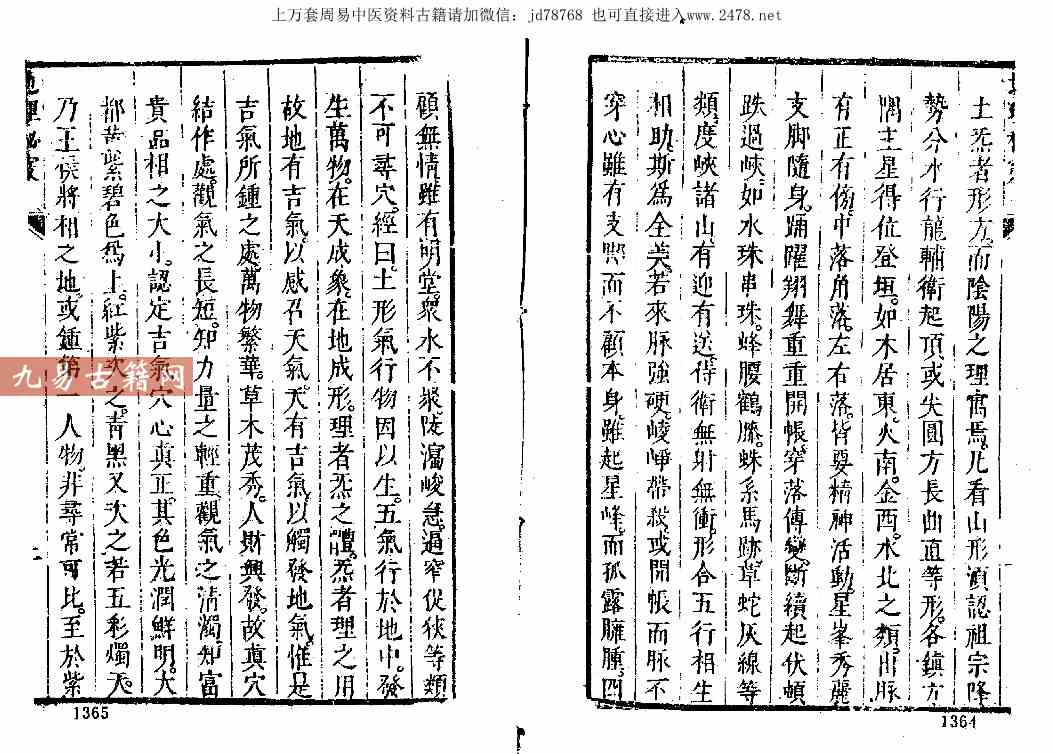 上万套周易中医资料古籍请加微信：jd78768 也可直接进入www.2478.net
土炁者形方。而陰陽之理寓焉。凡看山形須認祖宗降
勢分水行龍輔衛起頂或尖圓方長曲直等形。各鎮方
隅主星得位登垣。如木居東。火南。金西。水北之類。出脉
有正有傍。中落角落。左右落。皆要精神活動。星峯秀麗
支脚隨身。踊躍翔舞重重開帳。穿落傳變。斷續起伏頓
跌過峽。如水珠串珠。蜂腰鶴膝。蛛糸馬跡。草蛇灰線等
類。度峽諸山。有迎有送。得衛無射無衝。形合五行相生
相助。斯為全美。若來脉強硬。崚崢帶殺。或開帳而脉不
穿心雖有支脚而不顧本身。雖起星峰。而孤露臃腫。四
1364
顧無情。雖有明堂。衆水不聚。陡瀉峻急。逼窄促狹等類
不可尋穴。經曰。土形氣行物因以生。五氣行於地中。發
生萬物。在天成象。在地成形。理者炁之體。炁者理之用
故地有吉氣。以感召天氣。天有吉氣。以觸發地氣。惟是
吉氣所鍾之處。萬物繁華。草木茂秀。人財興發。故真穴
結作處。觀氣之長短。知力量之輕重。觀氣之清濁。知富
貴品相之大小。認定吉氣穴心真正。其色光潤鮮明。大
都黃紫碧色爲上。紅紫次之。青黑又次之若五彩燭天。
乃王侯將相之地。或鍾第一人物。非尋常可比。至於紫
地理秘竅
1365
九易古籍网